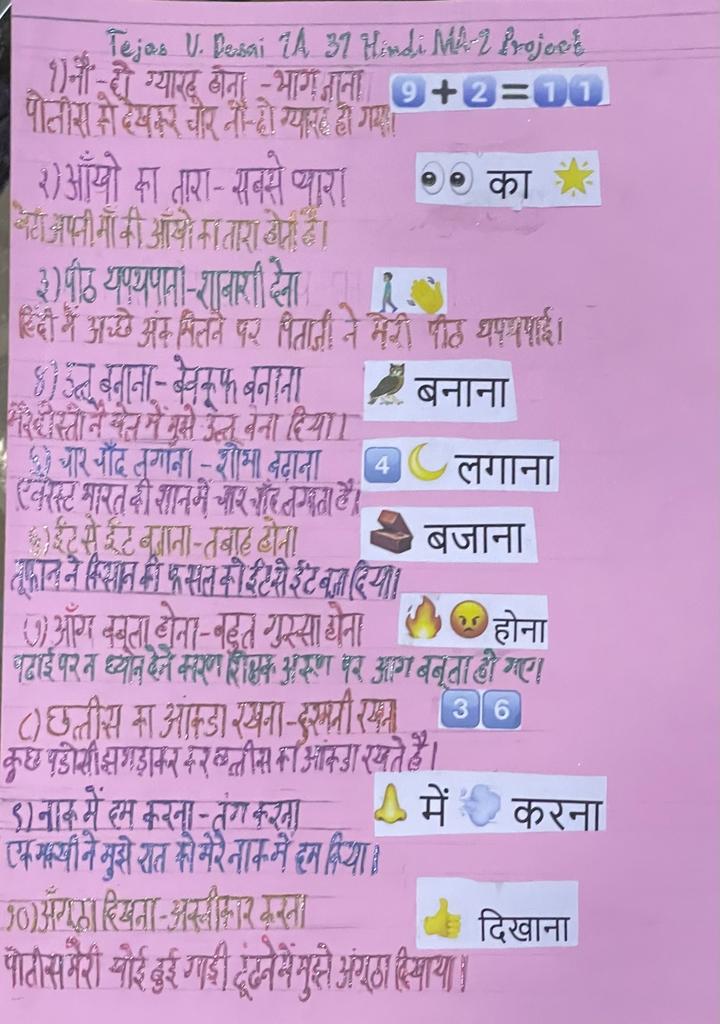 Tejas V. Desai 7A 37 Hindi MA-2 Project
१) नौ-दो ग्यारह होना - भाग जाना 9+2=11
पोलीस को देखकर चोर नौ-दो ग्यारह हो गया।
२) आँखो का तारा - सबसे प्यारा 👀 का 🌟
बेटा अपनी माँ की आँखो का तारा होता है।
३) पीठ थपथपाना - शाबाशी देना
हिंदी में अच्छे अंक मिलने पर पिताजी ने मेरी पीठ थपथपाई।
४) उल्लू बनाना - बेवकूफ बनाना बनाना
मेरे दोस्तो ने खेल में मुझे उल्लू बना दिया।
५) चार चाँद लगाना - शोभा बढ़ाना 4 लगाना
एवरेस्ट भारत की शान में चार चाँद लगाता है।
६) ईट से ईट बजाना - तबाह होना बजाना
तूफान ने किसान की फसल को ईट से ईट बजा दिया।
७) आँग बबूला होना - बहुत गुस्सा होना होना
पढाई पर न ध्यान देने कारण शिक्षक अरूण पर आग बबूला हो गए।
८) छत्तीस का आंकडा रखना - दुश्मनी रखना 36
कुछ पडोसी झगड़ाकर कर छत्तीस का आंकडा रखते है।
९) नाक में दम करना - तंग करना में करना
एक मख्खी ने मुझे रात को मेरे नाक में दम किया।
१०) अँगूठा दिखना - अस्वीकार करना दिखाना
पोलीस मेरी खोई हुई गाडी ढूंढने में मुझे अंगूठा दिखाया।